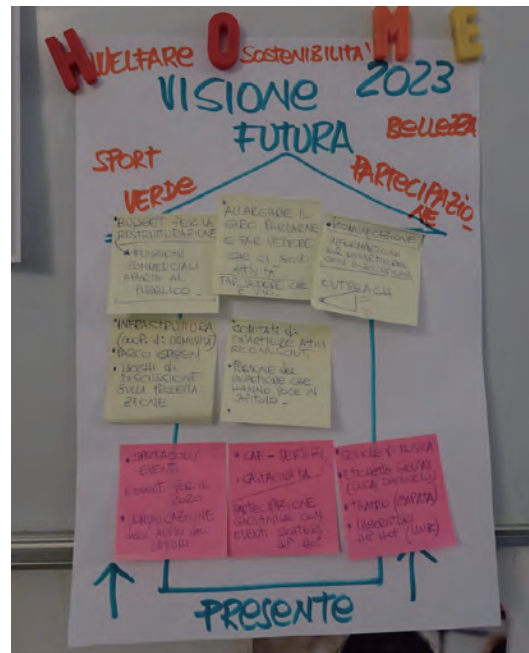 H O M E
WELFARE SOSTENIBILITA'
VISIONE 2023
FUTURA
BELLEZZA
SPORT
VERDE
PARTECIPAZIO-
NE
• BUDGET PER LA
RISTRUTTURAZIONE
FUNZIONI
COMMERCIALI
APERTE AL
PUBBLICO -
ALLARGARE IL
GIRO, PARLARNE
E FAR VEDERE
CHE CI SONO
ATTIVITÀ -
FAR VEDERE CHE
• COMUNICAZIONE
INFORMAZIONI
OUTREACH
• INFRASTRUTTURA
• PARCO
• LUOGHI di
DISCUSSIONE
SULLA PROGETTA
ZIONE
• COMITATI di
QUARTIERE ATTIVI
RICONOSCIUTI
• PERSONE del
QUARTIERE CHE
HANNO VOCE IN
CAPITOLO -
• SPETTACOLI/
EVENTI
EVENTI PER IL
2020
• COMUNICAZIONE
dell'AVVIO dei
LAVORI
• CAF -
PARTECIPAZIONE
GIOVANILE CON
EVENTI
HIP HOP
• SCUOLE di MUSICA
• ETICHETTE GIOVANI
• TEATRO
• LABORATORI
HIP HOP (LINK)
PRESENTE